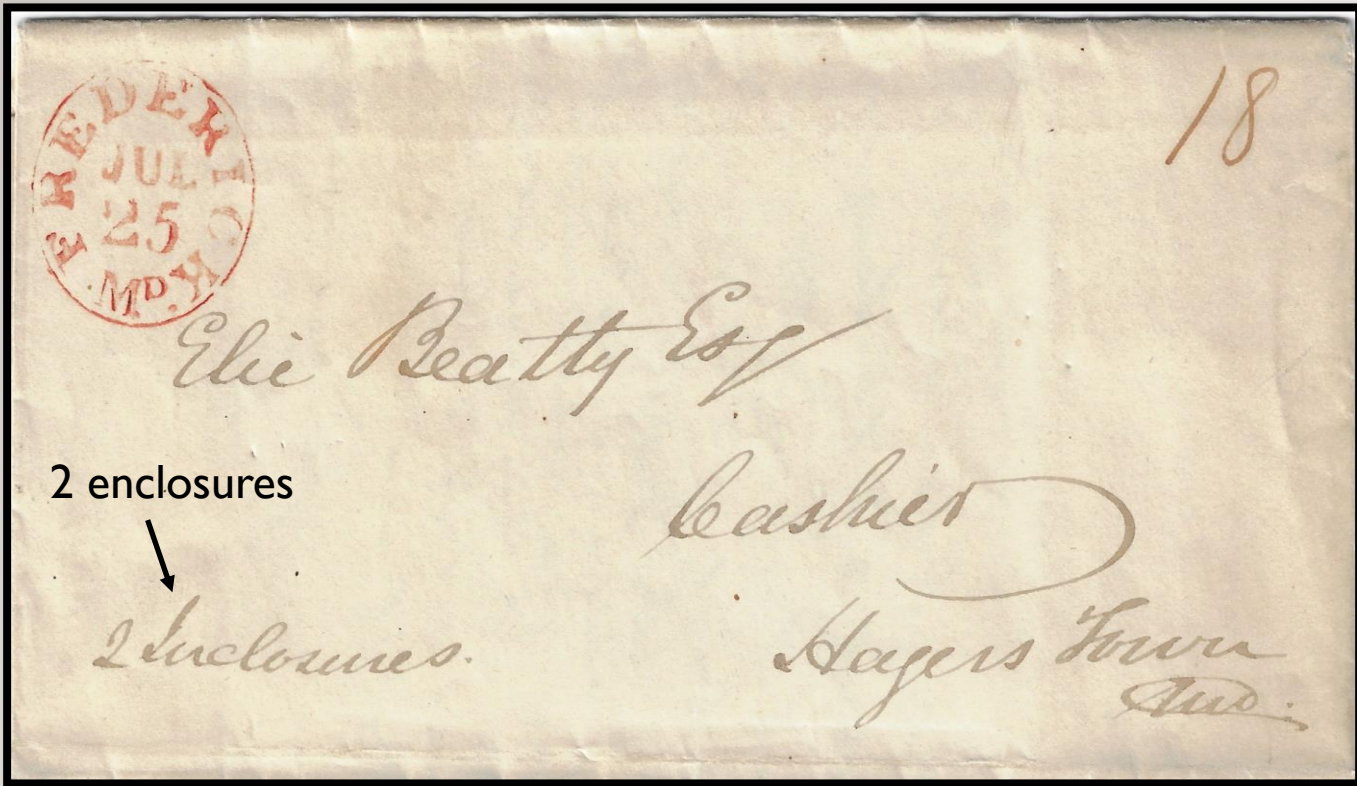 FREDERICK
JUL
25
MD.
18
Elie Beatty Esq
Cashier
2 enclosures
2 Inclosures.
Hagers Town
Md.